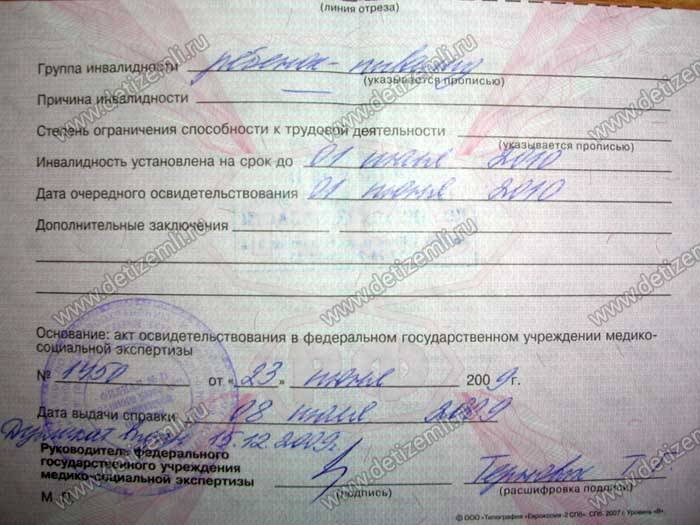 (линия отреза)
Группа инвалидности ребенок-инвалид
(указывается прописью)
Причина инвалидности
Степень ограничения способности к трудовой деятельности
(указывается прописью)
Инвалидность установлена на срок до 01 июля 2010
Дата очередного освидетельствования 01 июня 2010
Дополнительные заключения
Основание: акт освидетельствования в федеральном государственном учреждении медико-
социальной экспертизы
№ 1750 от «23» июня 2009г.
Дата выдачи справки 08 июля 2009
Дубликат выдан 15.12.2009г.
Руководитель федерального
государственного учреждения
медико-социальной экспертизы
М.П. (подпись) (расшифровка подписи)
© ООО «Типография «Еврокосма-2 СПб» СПб. 2007 г. Уровень «В».
www.detizemli.ru